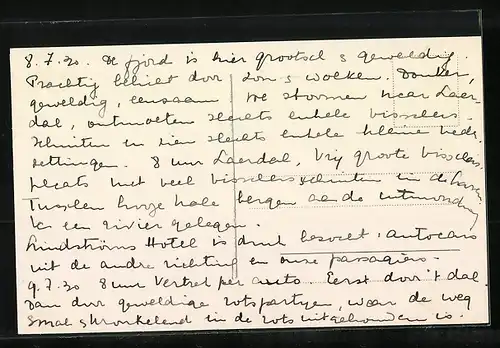 8.7.30. De fjord is hier grootsch & geweldig.
Prachtig belicht door zon & wolken. Donker,
geweldig, eenzaam. We stoomen naar Laer-
dal, ontmoeten slechts enkele visschers-
schuiten en zien slechts enkele kleine neder-
zettingen. 8 uur Laerdal, vrij groote visschers
plaats met veel visschersschuiten in de haven.
Tusschen hooge kale bergen aan de uitmonding
van een rivier gelegen.
Lindströms Hotel is druk bezocht: autocars
uit de andre richting en onze passagiers.
9.7.30 8 uur Vertrek per auto. Eerst door 't dal
dan door geweldige rotspartijen, waar de weg
smal & kronkelend in de rots uitgehouwen is.